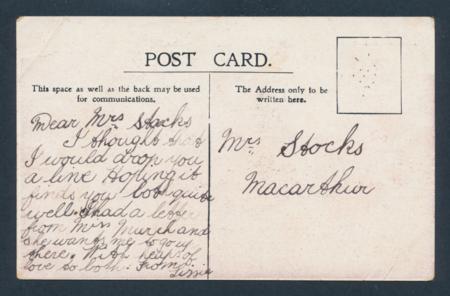 POST CARD.
This space as well as the back may be used
for communications.
The Address only to be
written here.
Dear Mrs Stocks
I thought that
I would drop you
a line Hoping it
finds you both quite
well. I had a letter
from Mrs Murch and
she wants me to go up
there. With heaps of
love to both. From
Lizzie
Mrs Stocks
Macarthur